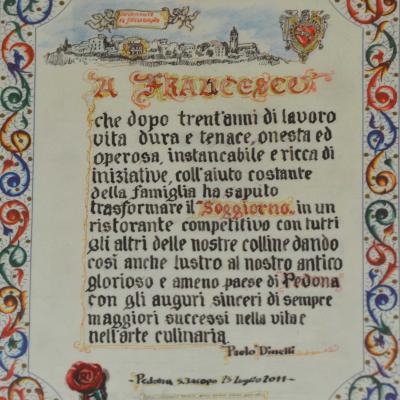 A FRANCESCO
che dopo trent'anni di lavoro
vita dura e tenace, onesta ed
operosa, instancabile e ricca di
iniziative, coll'aiuto costante
della famiglia ha saputo
trasformare il "Soggiorno" in un
ristorante competitivo con tutti
gli altri delle nostre colline dando
così anche lustro al nostro antico
glorioso e ameno paese di Pedona
con gli auguri sinceri di sempre
maggiori successi nella vita e
nell'arte culinaria.
Paolo Dinelli
- Pedona S. Jacopo 25 Luglio 2011 -